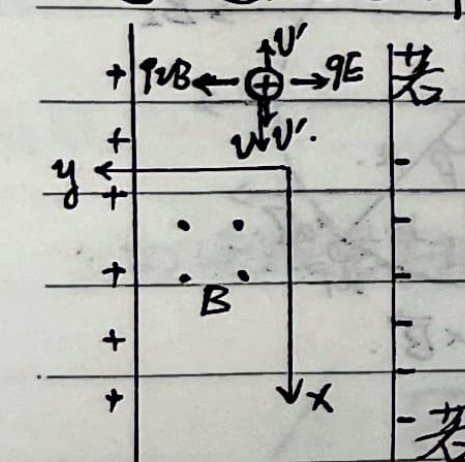 v'
+ qvB ⊕ qE 若
+ v v'.
-
y
+
-
+ -
B
+ -
-
+ x
-
若